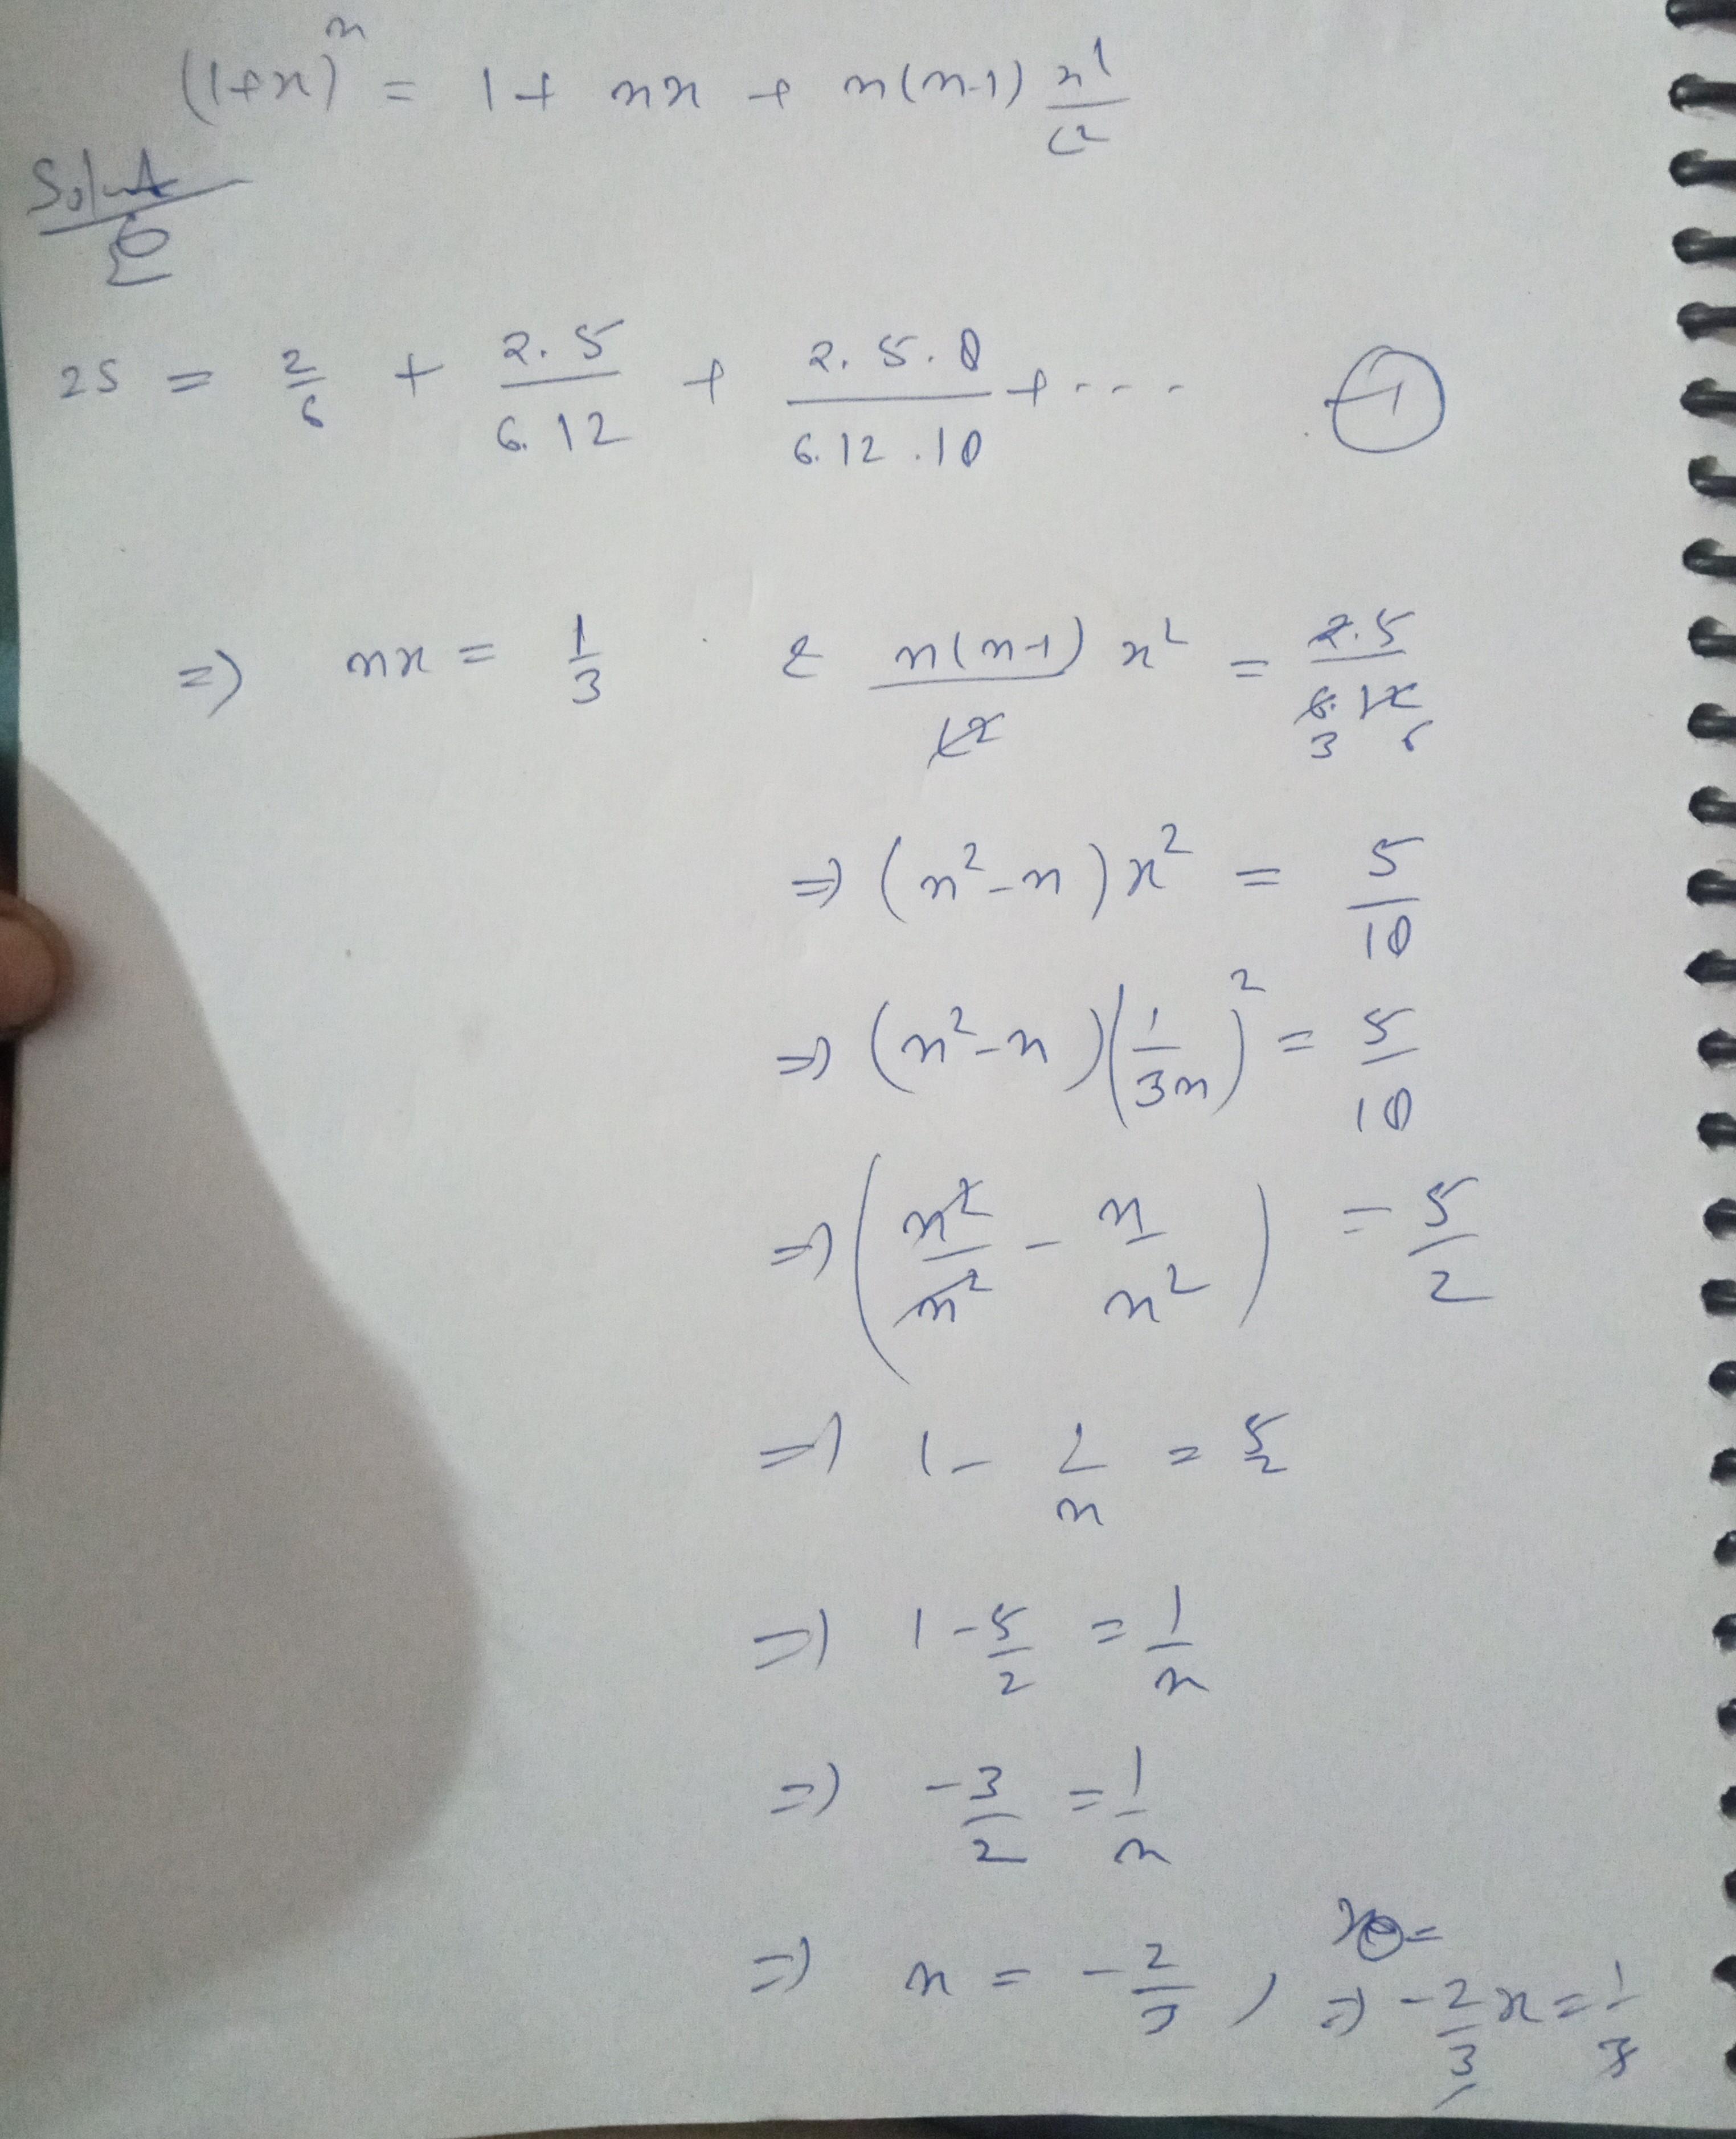 (1+x)^n = 1 + nx + n(n-1) x^2/⌊2
Solut
2S = 2/6 + 2.5/6.12 + 2.5.8/6.12.18 + ... (1)
=) nx = 1/3 & n(n-1)/⌊2 x^2 = 2.5/6.12 3 6
=) (n^2-n)x^2 = 5/18
=) (n^2-n)(1/3n)^2 = 5/18
=) (n^2/n^2 - n/n^2) = 5/2
=) 1 - 1/n = 5/2
=) 1 - 5/2 = 1/n
=) -3/2 = 1/n
x =
=) n = -2/3 , =) -2/3 x = 1/3